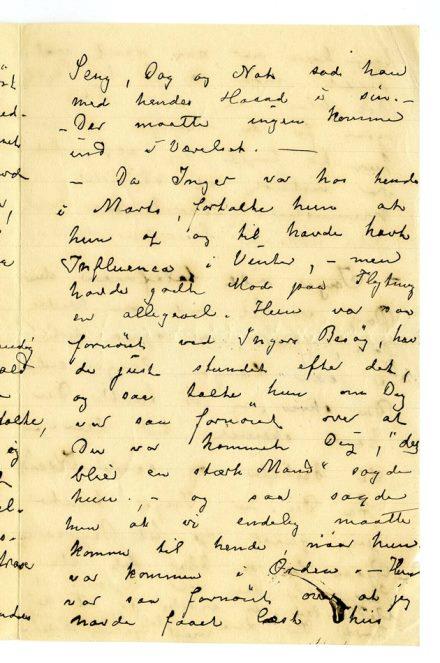 Seng, Dag og Nat sad han
med hendes Haand i sin. -
- Der maatte ingen komme
ind i Værelset. -
- Da Inger var hos hende
i Marts, fortalte hun at
hun af og til havde havt
Influenca i Vinter, - men
havde godt Mod paa Flytning
en alligevel. Hun var saa
fornöiet ved Ingers Besög, hav
de just stundet efter det,
og saa talte hun om Dig
var saa fornöiet over at
Du var kommet Dig, "
blev en stærk Mand" sagde
hun. - og saa sagde
hun at vi endelig maatte
komme til hende, naar hun
var kommen i Orden. - Hun
var saa fornöiet over at jeg
havde faaet læst Thiis